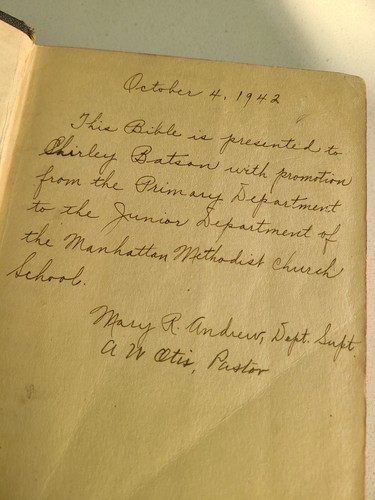 October 4, 1942
This Bible is presented to
Shirley Batson with promotion
from the Primary Department
to the Junior Department of
the Manhattan Methodist Church
School.
Mary R. Andrew, Dept. Supt.
A W Otis, Pastor